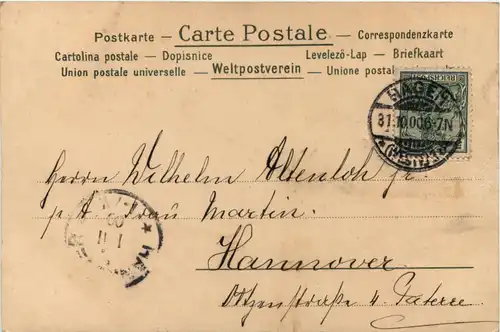 Postkarte — Carte Postale — Correspondenzkarte
Cartolina postale — Dopisnice Levelező-Lap — Briefkaart
Union postale universelle — Weltpostverein — Unione postal
HAGEN
31.10.00.6-7N
(WESTF.)
Herrn Wilhelm Altenloh jr.
p. A. Frau Martin.
Hannover.
Otzenstraße 4. Parterre.